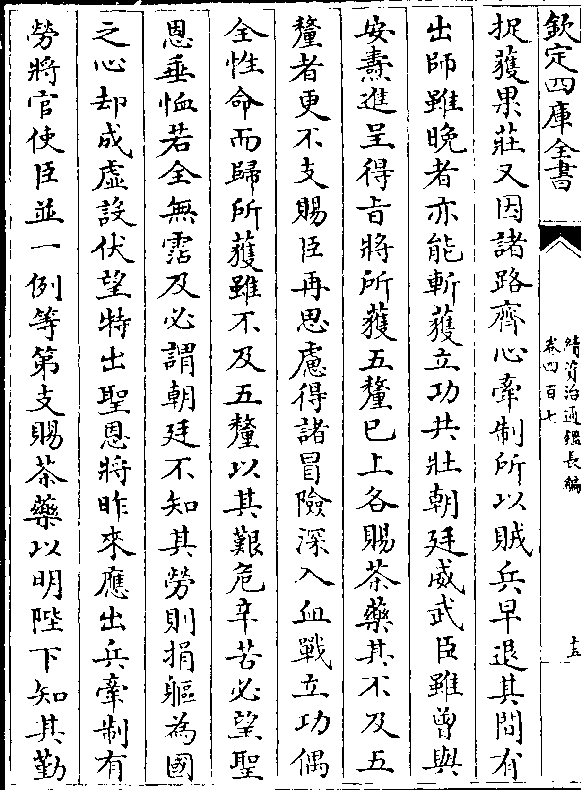 欽定四庫全書
續資治通鑑長編
卷四百七
十五
捉獲果莊又因諸路齊心牽制所以賊兵早退其間有
出師雖晚者亦能斬獲立功共壯朝廷威武臣雖曾與
安燾進呈得旨將所獲五釐已上各賜茶藥其不及五
釐者更不支賜臣再思慮得諸冒險深入血戰立功偶
全性命而歸所獲雖不及五釐以其艱危辛苦必望聖
恩垂恤若全無霑及必謂朝廷不知其勞則捐軀為國
之心却成虛設伏望特出聖恩將昨來應出兵牽制有
勞將官使臣並一例等第支賜茶藥以明陛下知其勤